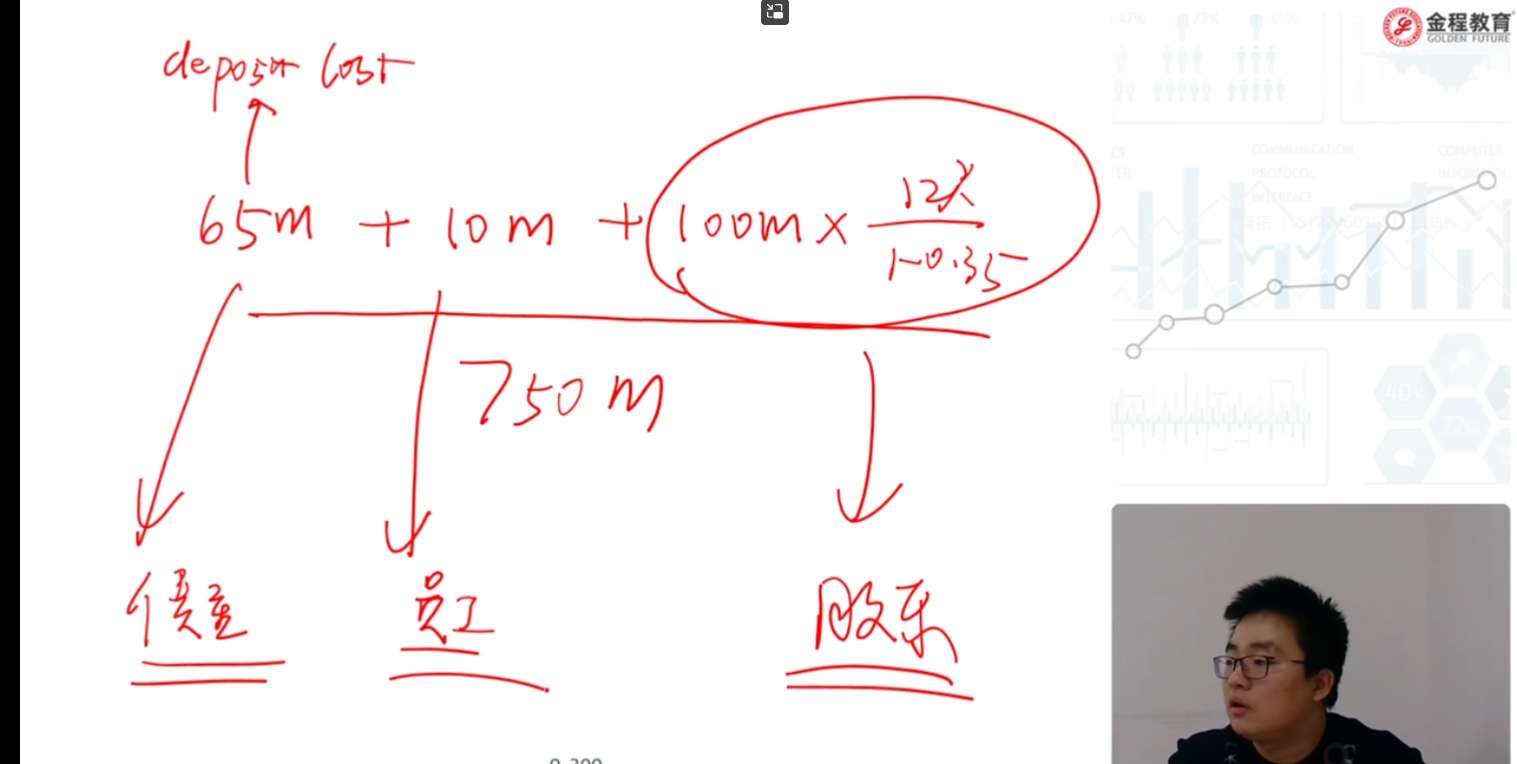 金程教育
GOLDEN FUTURE
deposit cost
65m + 10m + 100m × 12%
1-0.35
750m
债主
员工
股东
COMMUNICATION
PROTOCOL
INTERFACE
COMPUTER